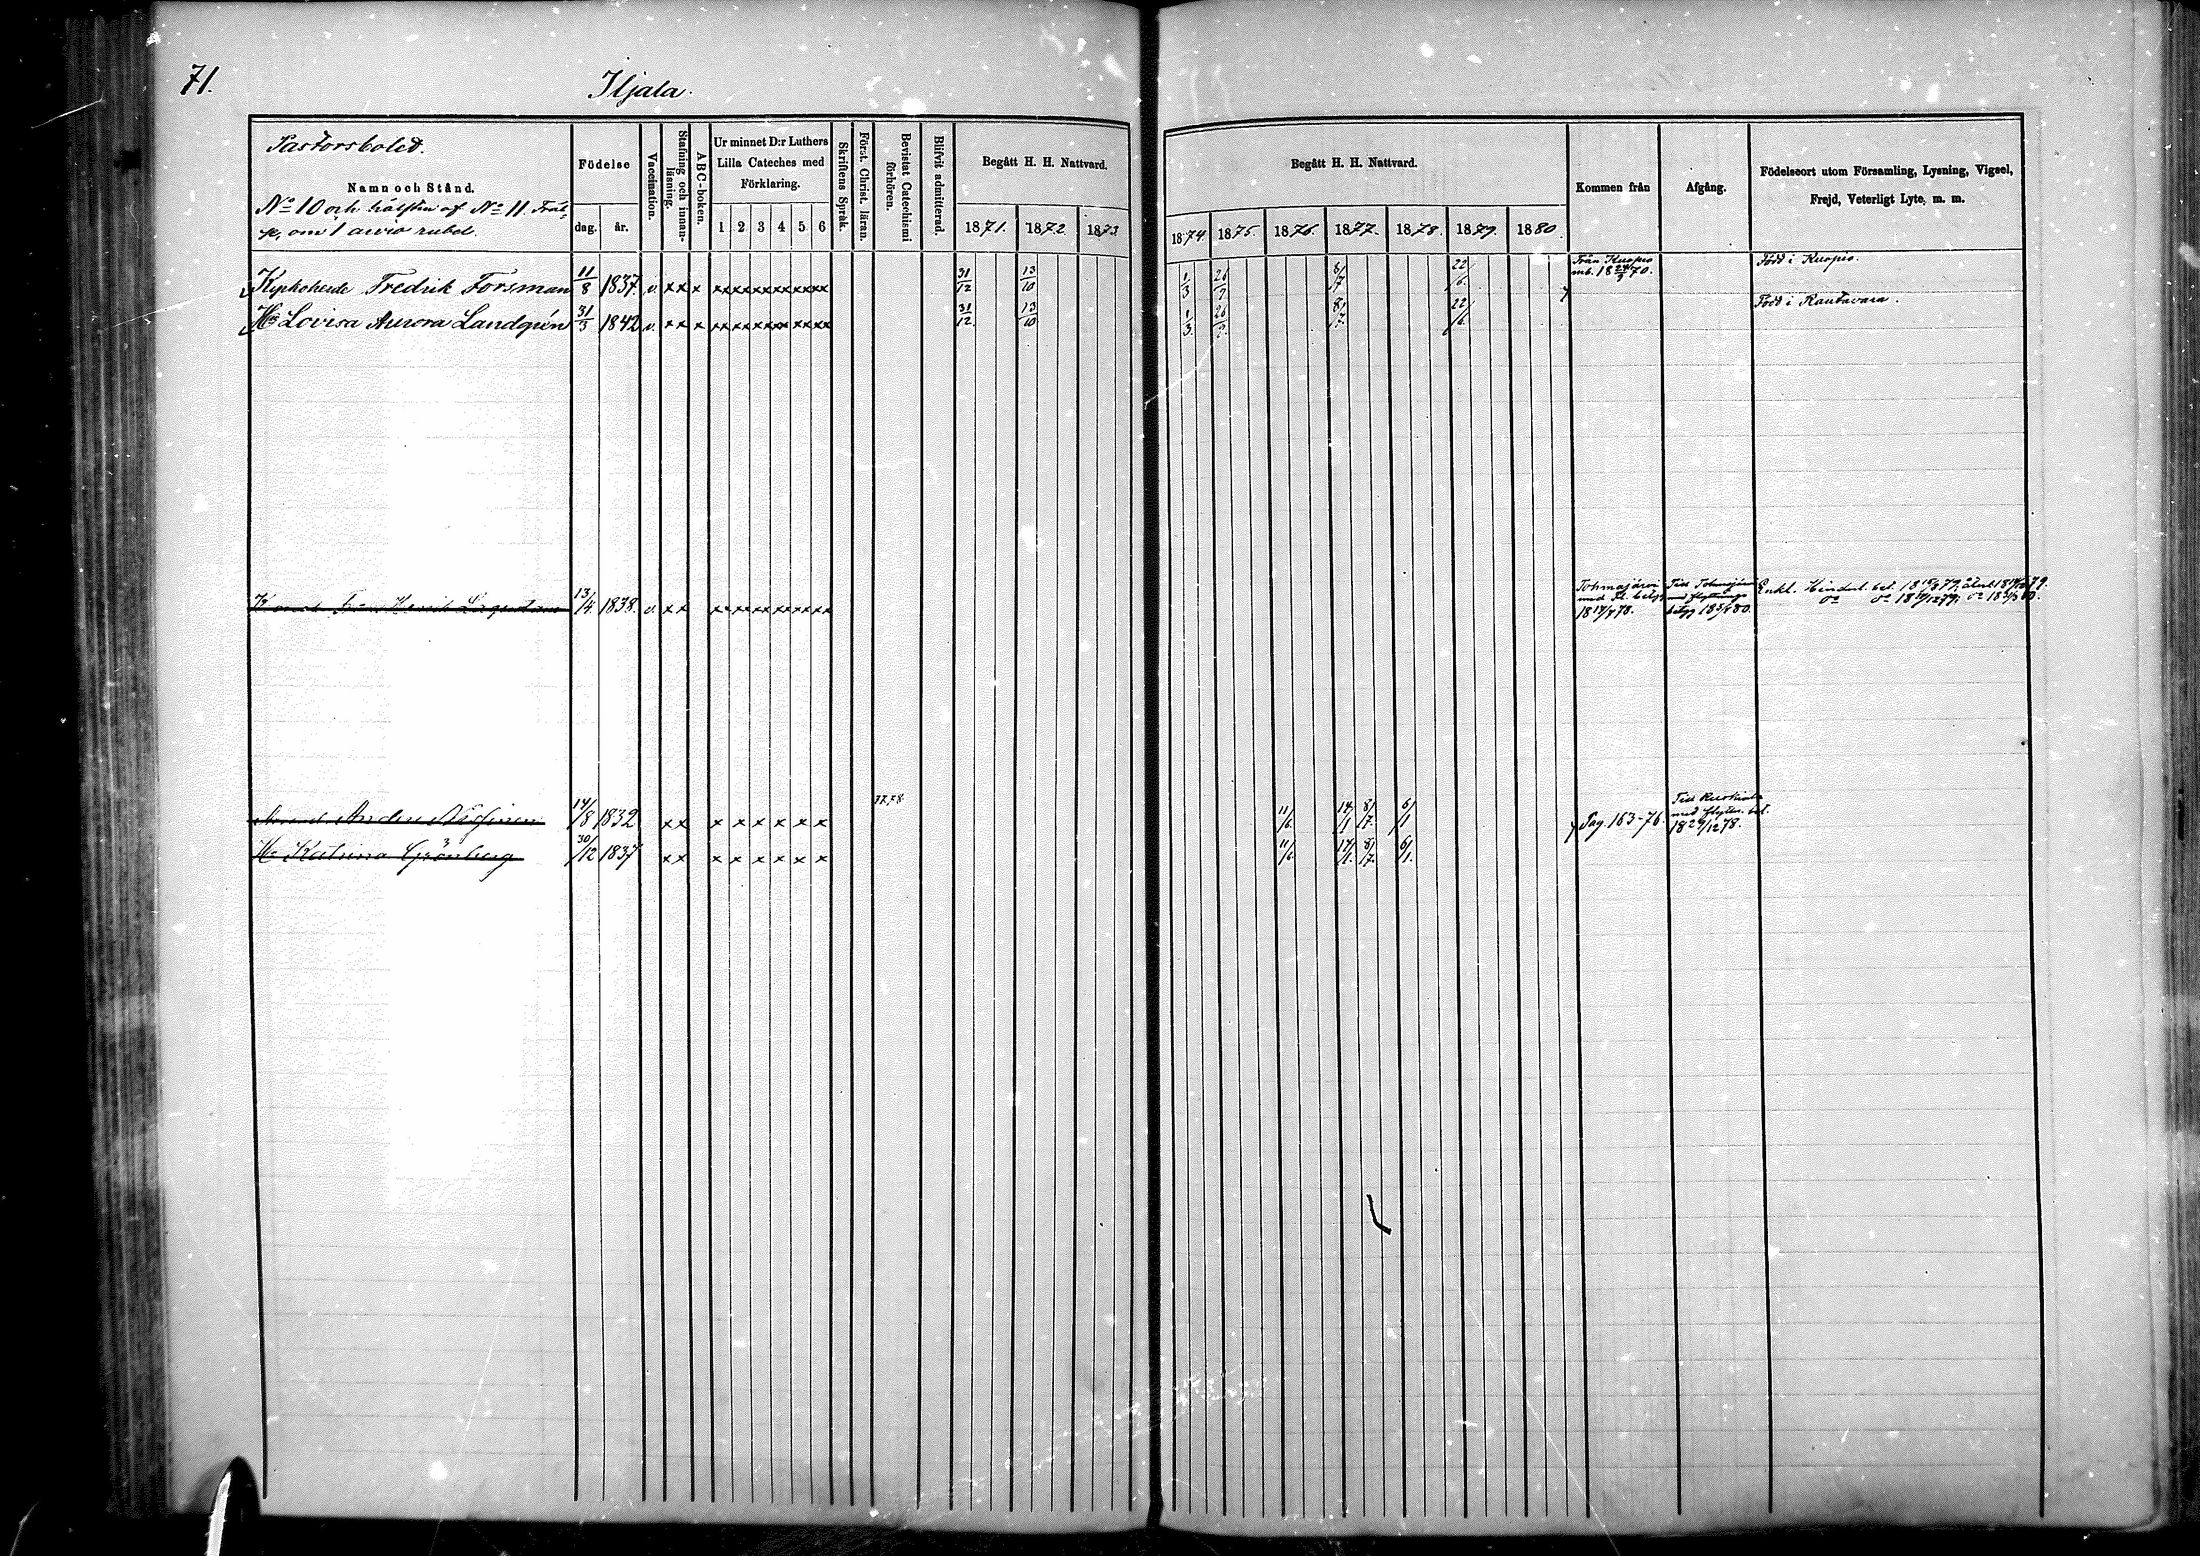 71.
Iljala.
Pastorsbolet.
Namn och Stånd.
No 10 och hälften af No 11
om 1 arvio rubel.
Födelse
dag. år.
Vaccination.
Stafning och innanläsning.
ABC-boken.
Ur minnet D:r Luthers
Lilla Cateches med
Förklaring.
1 2 3 4 5 6
Skriftens Språk.
Först. Christ. läran.
Bevistat Catechismi förhören.
Blifvit admitterad.
Begått H. H. Nattvard.
1871. 1872 1873
Begått H. H. Nattvard.
1874. 1875. 1876. 1877. 1878. 1879. 1880.
Kommen från
Afgång.
Födelseort utom Församling, Lysning, Vigsel,
Frejd, Veterligt Lyte, m. m.
Kyrkoherde Fredrik Forsman 11/8 1837. v. x x x xxxxxxxxxxxx 31/12 13/10 1/3 26/9 8/7 22/6. Från Kuopio Född i Kuopio.
mb. 18 24/5 70.
Hu Lovisa Aurora Landgrén 31/3 1842 v. x x x xxxxxxxxxxxx 31/12. 13/10 1/3. 26/9. 8/7. 22/6. Född i Rautavara.
Henrik 13/4. 1838. v. x x xxxxxxxxxxxx Tohmajärvi Till Tohmajärvi Enkl. Hinderl. bet.
med fl. betyg med flyttnings
18 17/7 78. betyg 18 5/4 80.
77,78.
Anders 14/8 1832 x x x x x x x x 11/6. 14/1 8/7. 6/1 Pag. 163-76. Till Ruskiala
med flyttn. bet.
Hu Katrina Grönberg 30/12 1837 x x x x x x x x 11/6. 14/1. 8/7. 6/1.